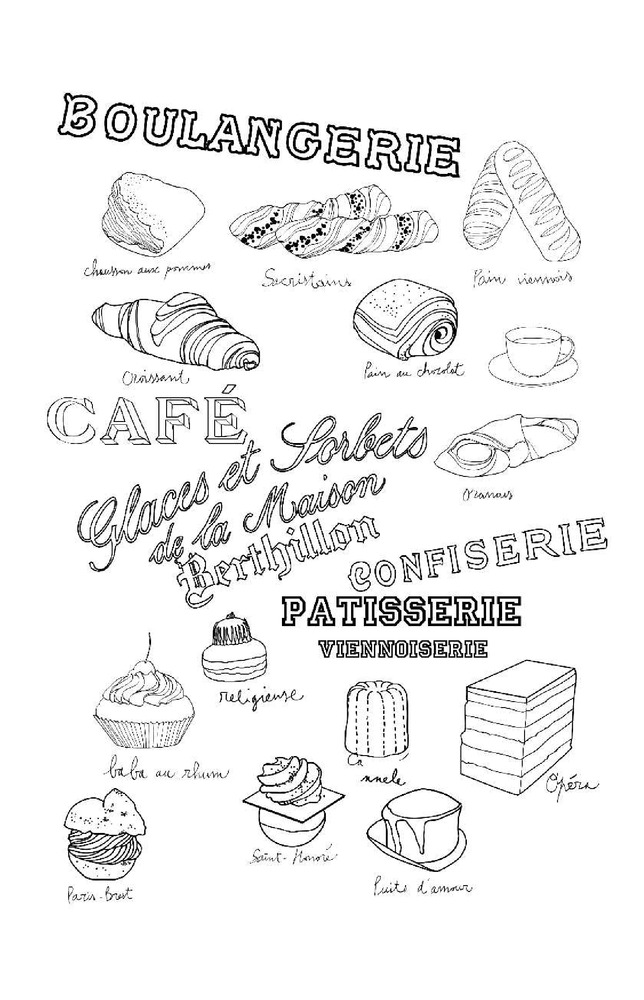 BOULANGERIE
chausson aux pommes
Sacristains
Pain viennois
Croissant
Pain au chocolat
CAFÉ
Glaces et Sorbets
de la Maison
Berthillon
Oranais
CONFISERIE
PATISSERIE
VIENNOISERIE
religieuse
baba au rhum
Ca
nnele
Opéra
Saint-Honoré
Paris-Brest
Puits d'amour